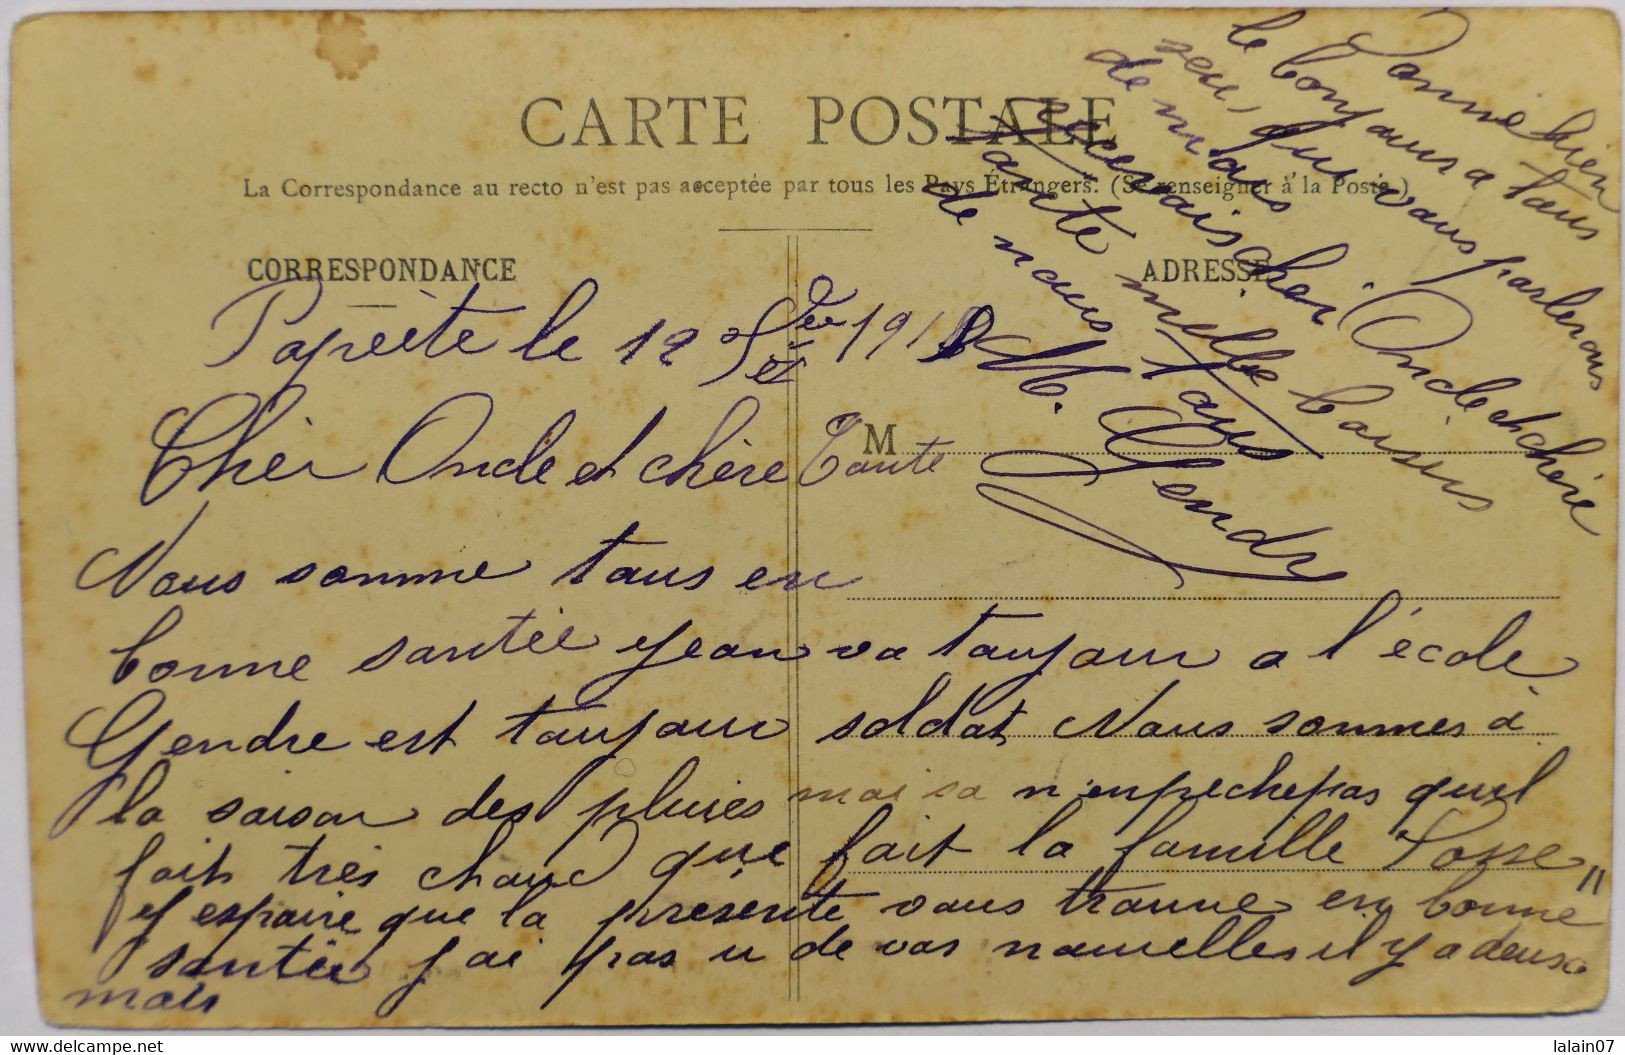 CARTE POSTALE
La Correspondance au recto n'est pas acceptée par tous les Pays Étrangers. (Se renseigner à la Poste.)
CORRESPONDANCE
ADRESSE
M
Papeete le 12 1918
Cher Oncle et chère Tante
Nous somme tous en
bonne santée Jean va toujour a l'école
Gendre est toujour soldat, Nous sommes a
la saison des pluies mai sa n'enpeche pas quil
fait très chaud que fait la famille Posse"
J'espaire que la présente vous trouve en bonne
santée j'ai pas u de vos nouvelles il y a deux
mois
Donné bien
le bonjours a tous
ceux qui vous parlerons
de nous
recevais cher Oncle et chère
tante mille baisers
de nous tous
M. Gendre
lalain07
www.delcampe.net